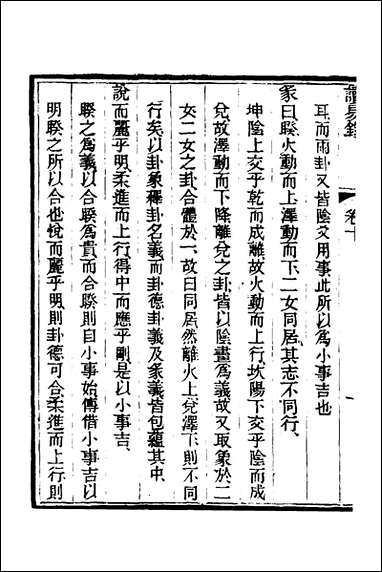 讀易錄 卷十
耳而兩卦又皆陰爻用事此所以爲小事吉也
彖曰睽火動而上澤動而下二女同居其志不同行
坤陰上交乎乾而成離故火動而上行坎陽下交乎陰而成
兌故澤動而下降離兌之卦皆以陰畫爲義故又取象於二
女二女之卦合體於一故曰同居然離火上兌澤下則不同
行矣以卦象釋卦名義而卦德卦義及彖義皆包蘊其中
說而麗乎明柔進而上行得中而應乎剛是以小事吉
睽之爲義以合睽爲貴而合睽則自小事始傳借小事吉以
明睽之所以合也悅而麗乎明則卦德可合柔進而上行則